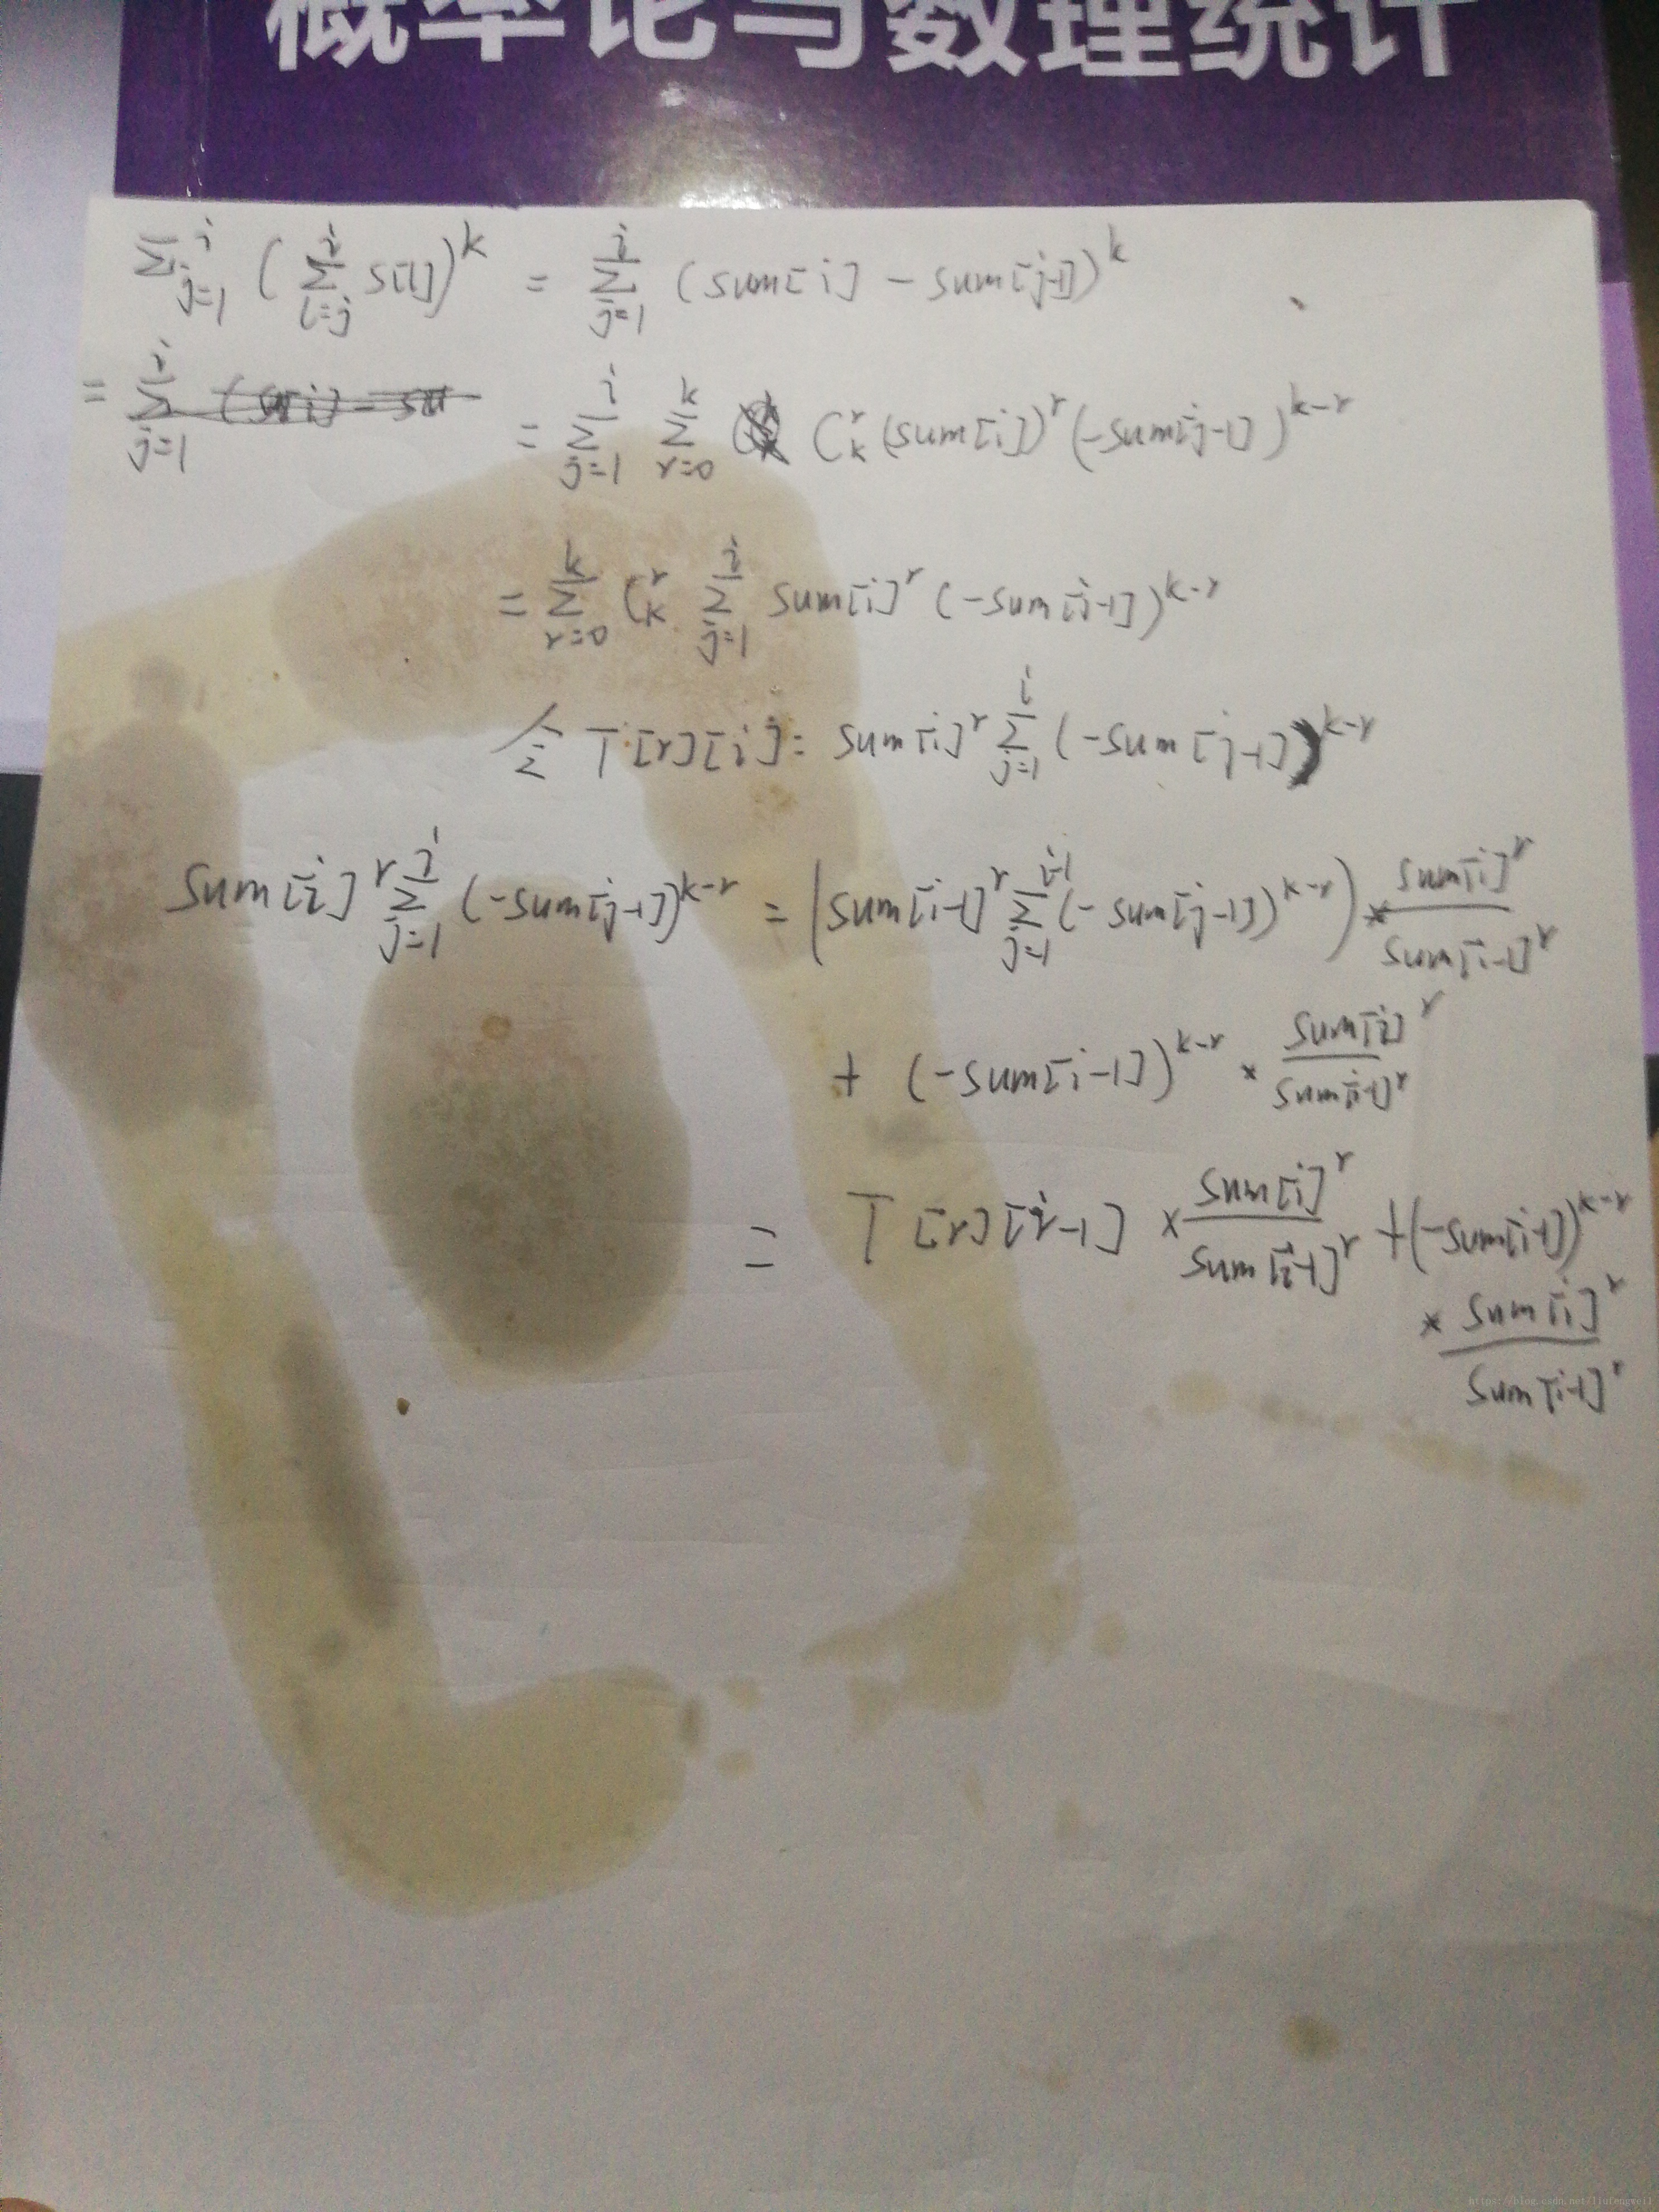 概率论与数理统计
∑_{j=1}^{i} (∑_{l=j}^{i} s[l])^k = ∑_{j=1}^{i} (sum[i] - sum[j-1])^k
= ∑_{j=1}^{i}
= ∑_{j=1}^{i} ∑_{r=0}^{k} C_k^r (sum[i])^r (-sum[j-1])^{k-r}
= ∑_{r=0}^{k} C_k^r ∑_{j=1}^{i} sum[i]^r (-sum[i-1])^{k-r}
令 T[r][i] = sum[i]^r ∑_{j=1}^{i} (-sum[j-1])^{k-r}
sum[i]^r ∑_{j=1}^{i} (-sum[j-1])^{k-r} = (sum[i-1]^r ∑_{j=1}^{i-1} (-sum[j-1])^{k-r}) * \frac{sum[i]^r}{sum[i-1]^r}
+ (-sum[i-1])^{k-r} * \frac{sum[i]^r}{sum[i-1]^r}
= T[r][i-1] × \frac{sum[i]^r}{sum[i-1]^r} + (-sum[i-1])^{k-r}
* \frac{sum[i]^r}{sum[i-1]^r}